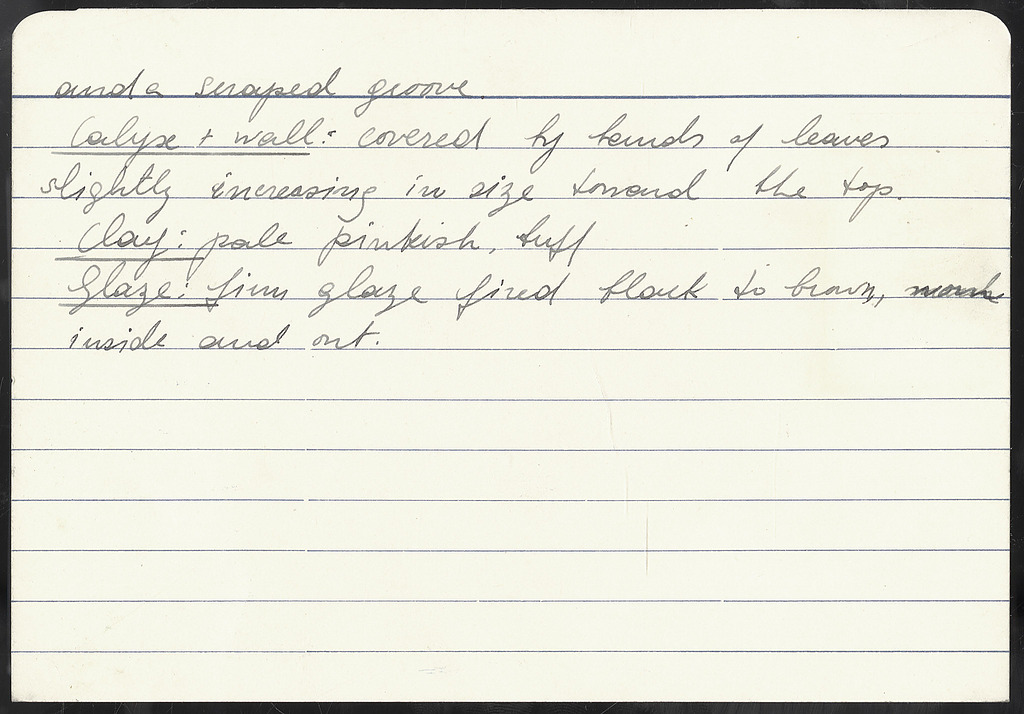 and a scraped groove.
Calyx + wall: covered by bands of leaves
slightly increasing in size toward the top.
Clay: pale pinkish, buff
Glaze: firm glaze fired black to brown,
inside and out.